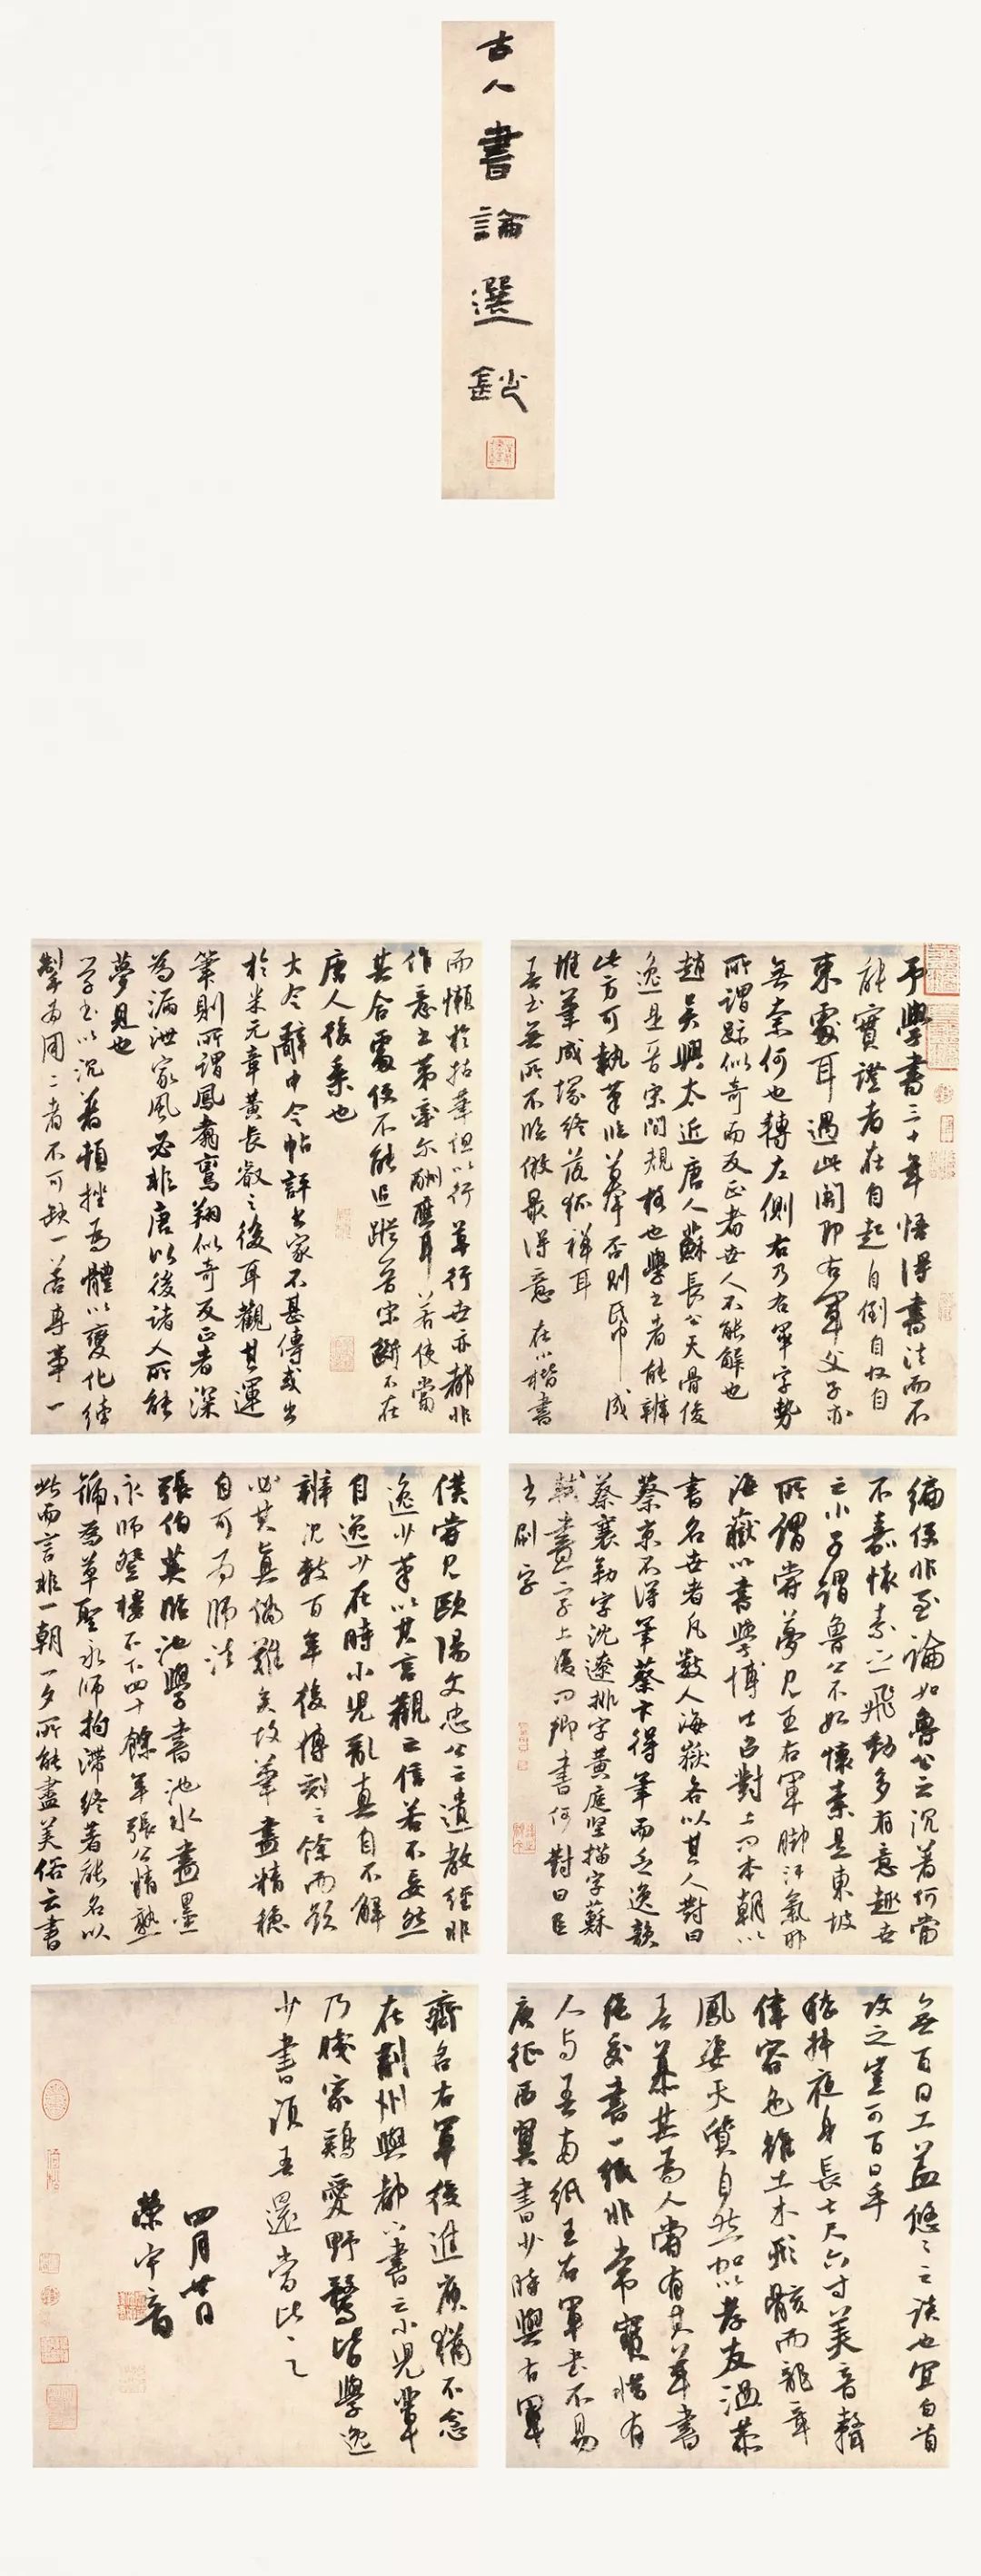 古人書論選鈔
予學書三十年悟得書法而不
能實證者在自起自倒自收自
束處耳過此關即右軍父子亦
無奈何也轉左側右乃右軍字勢
所謂跡似奇而反正者世人不能解也
趙吳興太近唐人蘇長公天骨俊
逸是晉宋間規格也學書者能辨
此方可執筆臨摹否則紙成
堆筆成塚終落狐禪耳
吾書無所不臨倣最得意在小楷書
而懶於拈筆但以行草行世亦都非
作意書第率爾酬應耳若使當
其合處便不能追蹤晉宋斷不在
唐人後乘也
大令辭中令帖評書家不甚傳或出
於米元章黃長睿之後耳觀其運
筆則所謂鳳翥鸞翔似奇反正者深
為漏泄家風必非唐以後諸人所能
夢見也
學書以沉著頓挫為體以變化牽
掣為用二者不可缺一若專事一
偏便非至論如魯公之沉著何嘗
不嘉懷素之飛動多有意趣世
之小子謂魯公不如懷素是東坡
所謂嘗夢見王右軍脚汗氣耶
海嶽以書學博士召對上問本朝以
書名世者凡數人海嶽各以其人對曰
蔡京不得筆蔡卞得筆而乏逸韻
蔡襄勒字沈遼排字黃庭堅描字蘇
軾畫字上復問卿書何對曰臣
書刷字
僕嘗見歐陽文忠公云遺教經非
逸少筆以其言觀之信若不妄然
自逸少在時小兒亂真自不解
辨況數百年後傳刻之餘而欲
必其真偽難矣故筆畫精穩
自可為師法
張伯英臨池學書池水盡墨
永師登樓不下四十餘年張公精熟
號為草聖永師拘滯終著能名以
此而言非一朝一夕所能盡美俗云書
無百日工蓋悠悠之談也宜白首
攻之豈可百日乎
嵇叔夜身長七尺六寸美音聲
偉容色雖土木形骸而龍章
鳳姿天質自然加以孝友溫恭
吾慕其為人嘗有其草書
絕交書一紙非常寶惜有
人與吾兩紙王右軍書不易
庾征西翼書少時與右軍
齊名右軍後進庾猶不忿
在荊州與都下書云小兒輩
乃賤家雞愛野鶩皆學逸
少書須吾還當比之
四月廿日
榮宇音